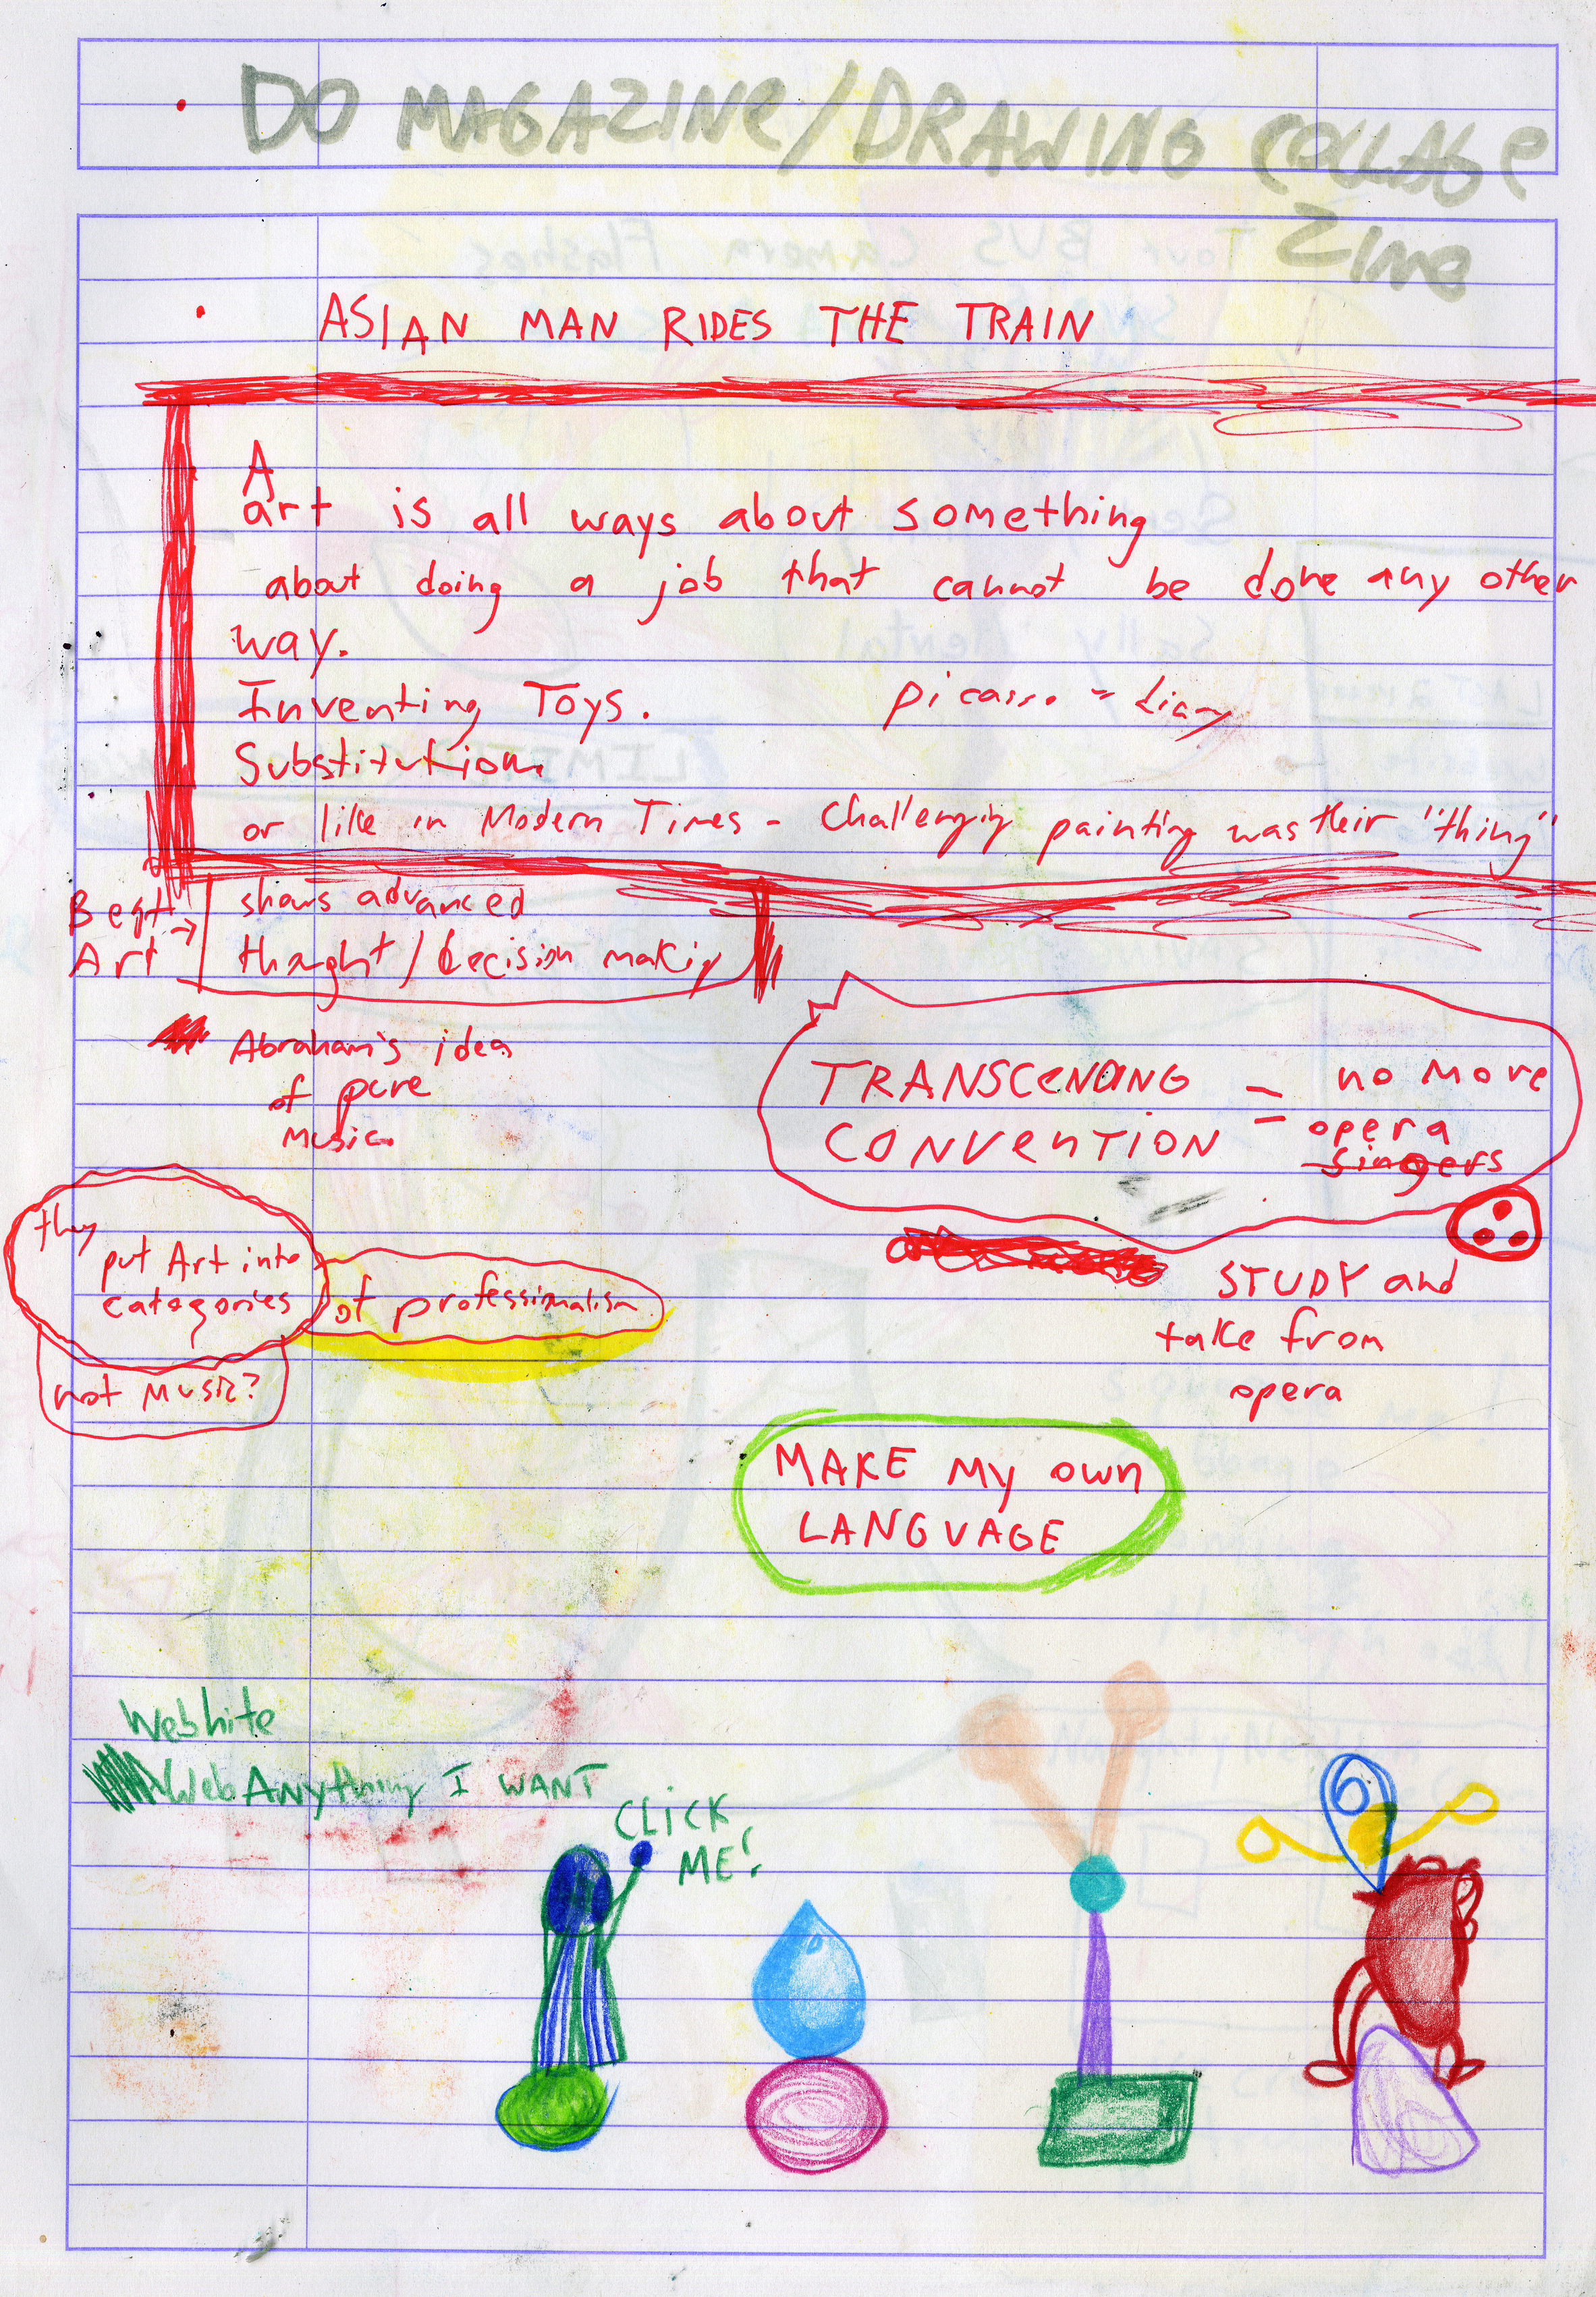 DO MAGAZINe/DRAWING COLLAGe
Zine
ASIAN MAN RIDES THE TRAIN
A
art is all ways about something
about doing a job that cannot be done any other
way.
Inventing Toys.
picasso = diary
Substitution.
or like in Modern Times - Challenging painting was their "thing"
Best Art →
shows advanced
thought / decision making
Abraham's idea
of pure
music.
TRANSCeNDING = no more
CONVeNTION = opera
singers
they
put Art into
categories
of professionalism
not Music?
STUDY and
take from
opera
MAKE My own
LANGUAGE
Webhite
Web Anything I WANT
CLICK
ME!